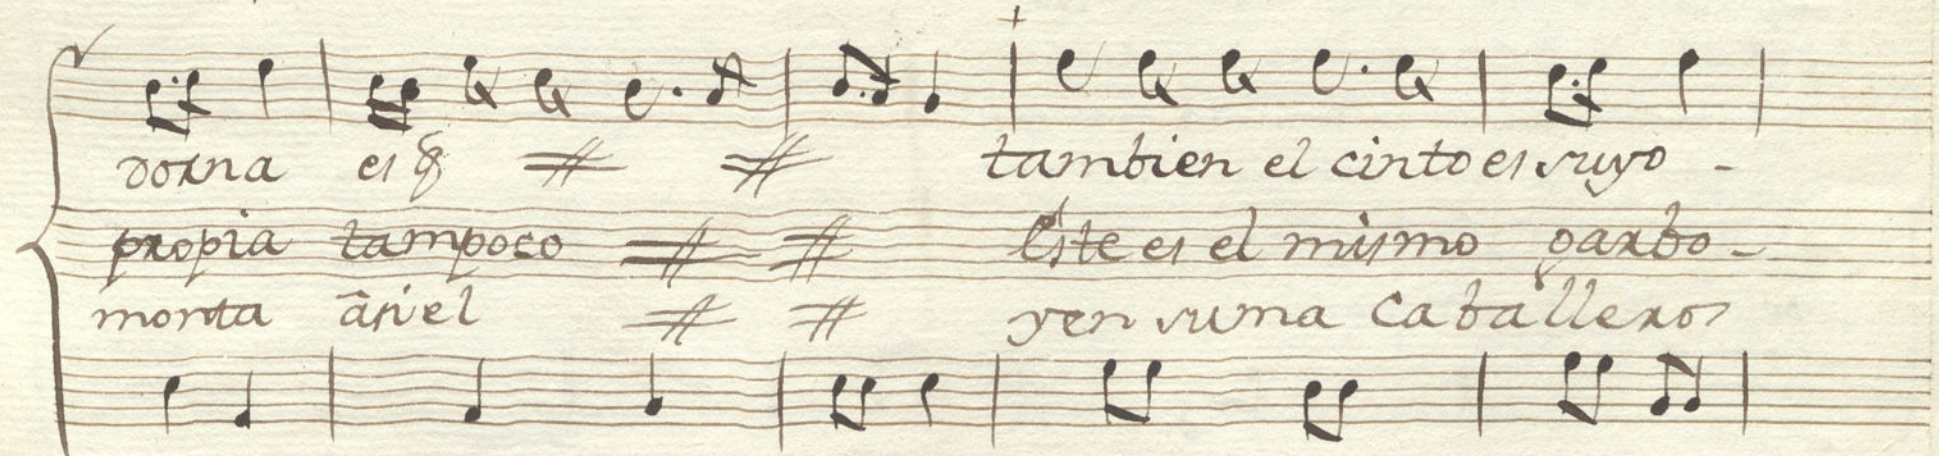 dorna es q̃ # # tambien el cinto es suyo -
propia tampoco # # Este es el mismo garbo -
monta asi el # # yen suma caballeros